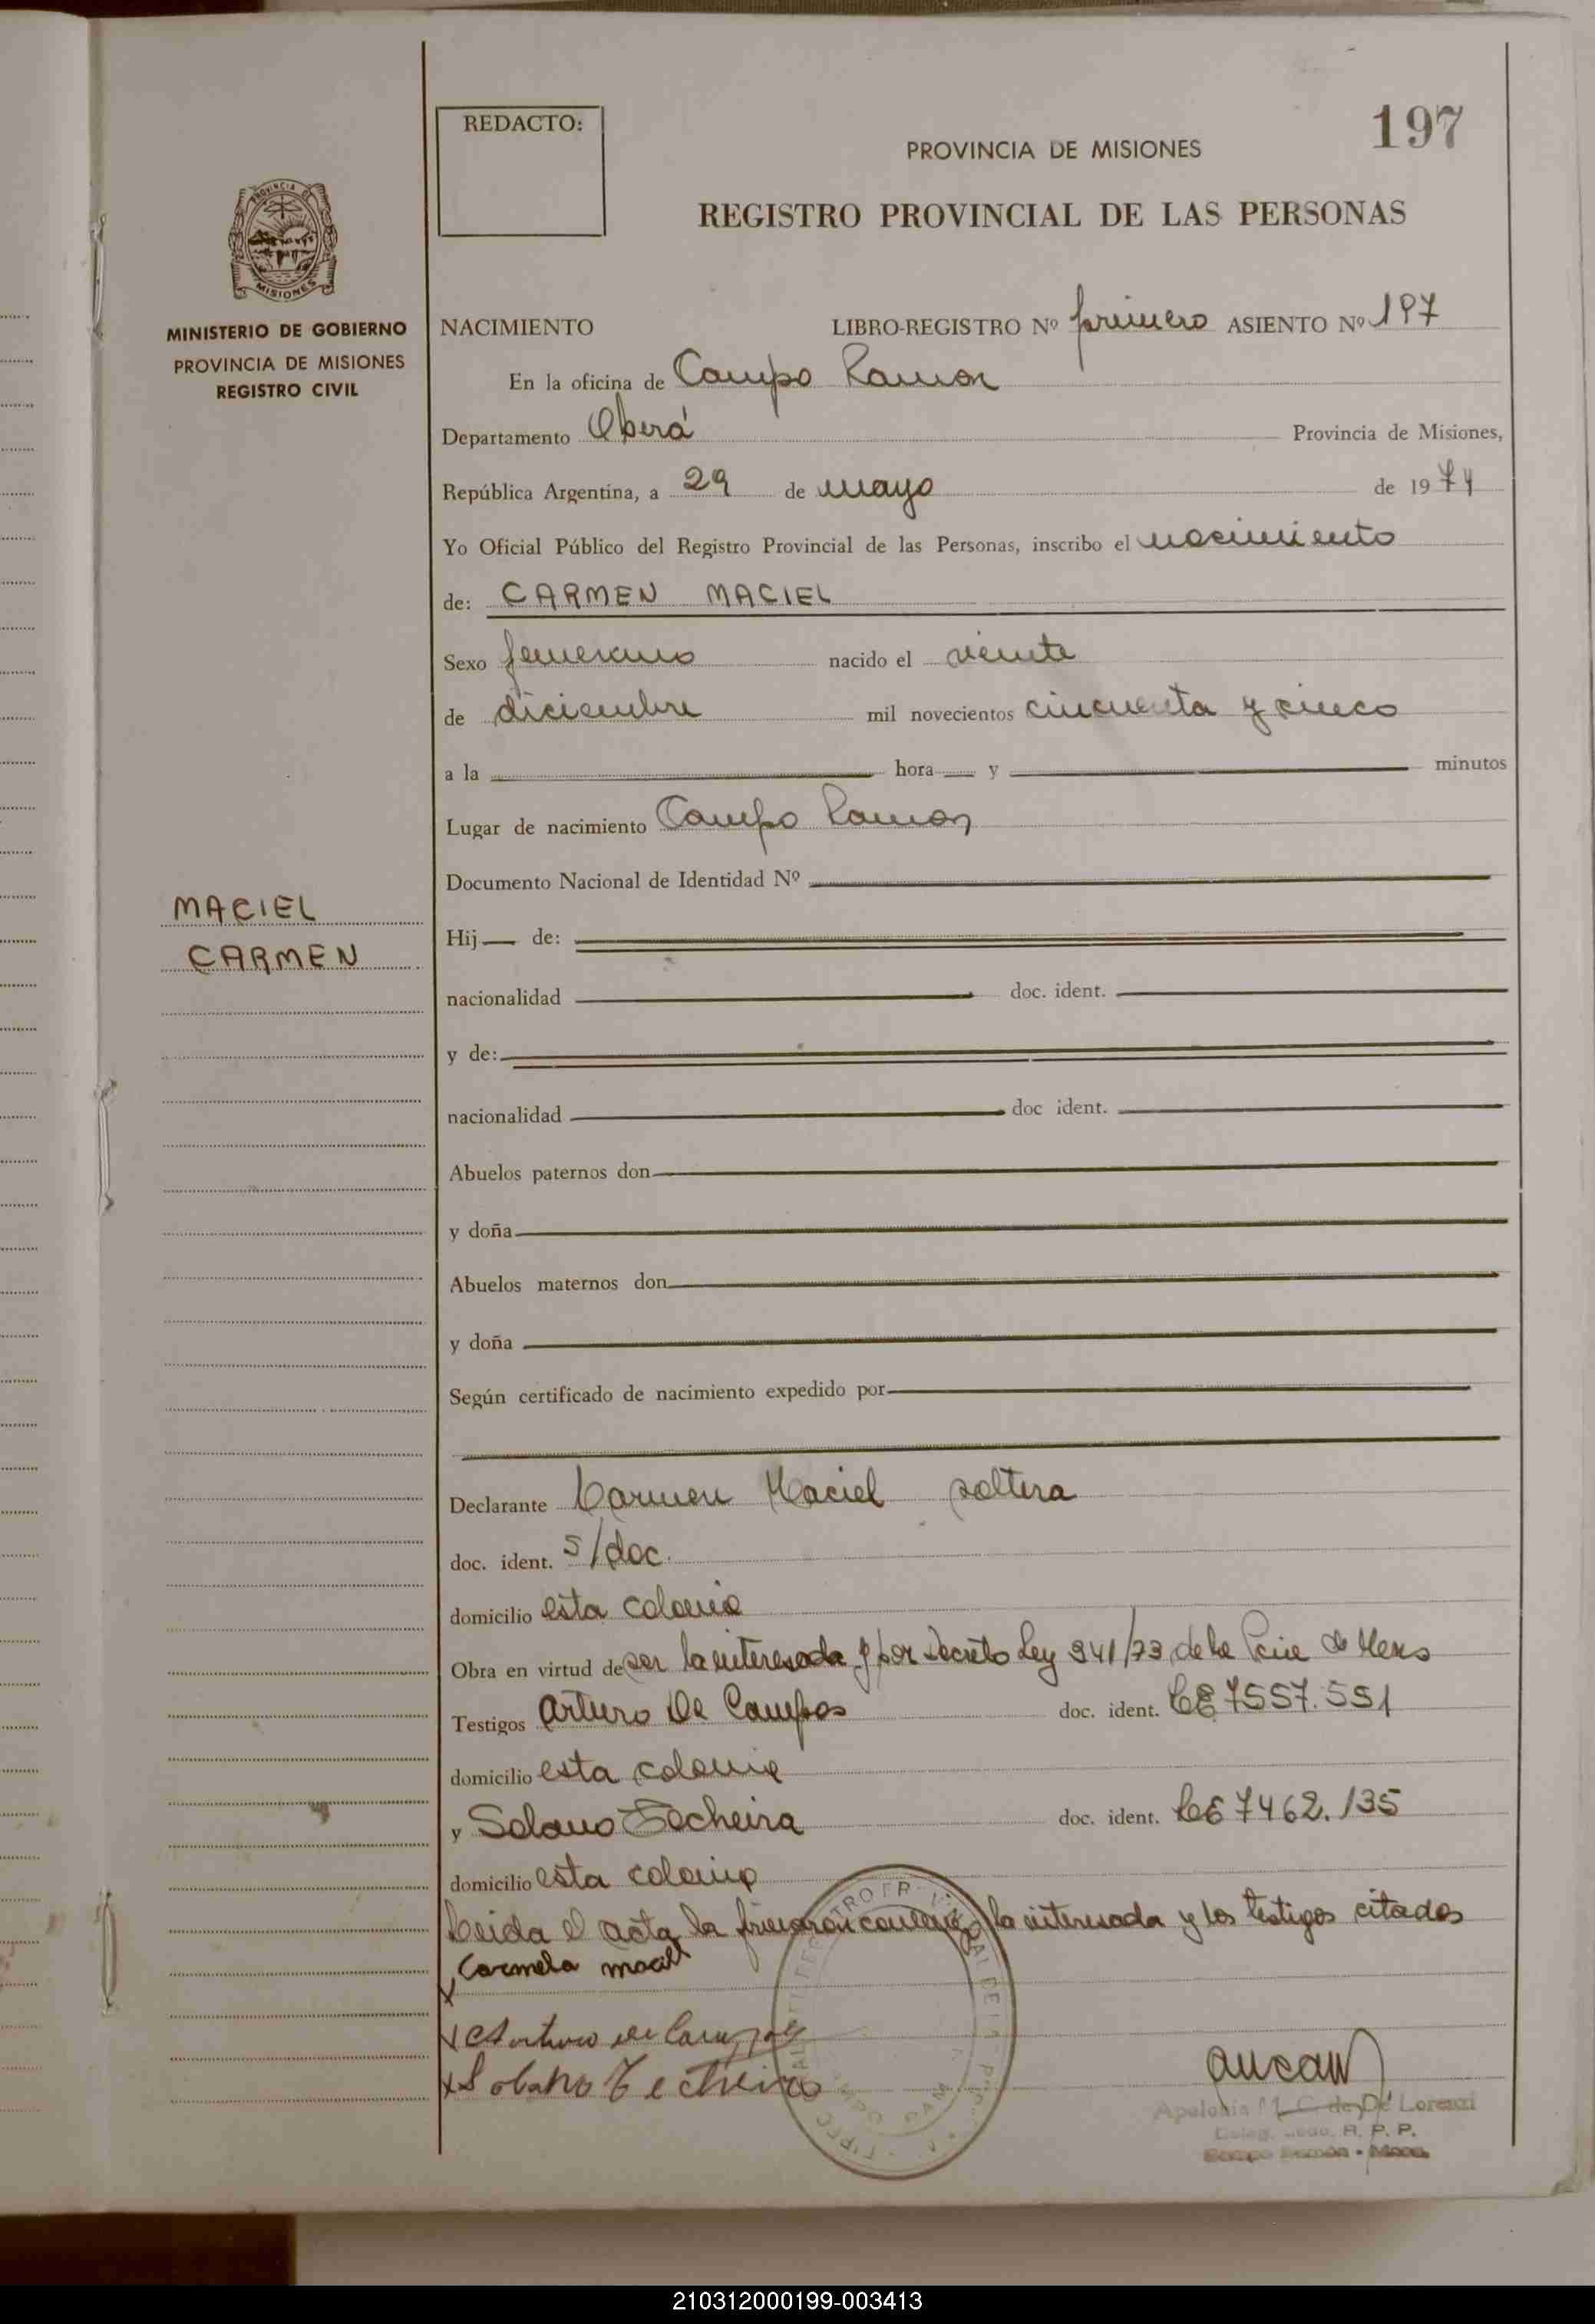 197
REDACTO:
PROVINCIA DE MISIONES
REGISTRO PROVINCIAL DE LAS PERSONAS
MISIONES
MINISTERIO DE GOBIERNO
PROVINCIA DE MISIONES
REGISTRO CIVIL
MACIEL
CARMEN
NACIMIENTO LIBRO-REGISTRO Nº primero ASIENTO Nº 197
En la oficina de Campo Ramon
Departamento Oberá Provincia de Misiones,
República Argentina, a 29 de mayo de 1974
Yo Oficial Público del Registro Provincial de las Personas, inscribo el nacimiento
de: CARMEN MACIEL
Sexo femenino nacido el veinte
de diciembre mil novecientos cincuenta y cinco
a la hora y minutos
Lugar de nacimiento Campo Ramon
Documento Nacional de Identidad Nº
Hij de:
nacionalidad doc. ident.
y de:
nacionalidad doc ident.
Abuelos paternos don
y doña
Abuelos maternos don
y doña
Según certificado de nacimiento expedido por
Declarante Carmen Maciel soltera
doc. ident. s/doc.
domicilio esta colonia
Obra en virtud de ser la interesada y por Decreto Ley 941/73 de la de
Testigos Arturo De Campos doc. ident. 7557.551
domicilio esta colonia
y Solano doc. ident. 7462.135
domicilio esta colonia
Leida el acta la firmaron conmigo la interesada y los testigos citados
Carmela
Arturo de Campos
Apolonia M. C. de De Lorenzi
R. P. P.
Campo Ramón - Mnes.
210312000199-003413